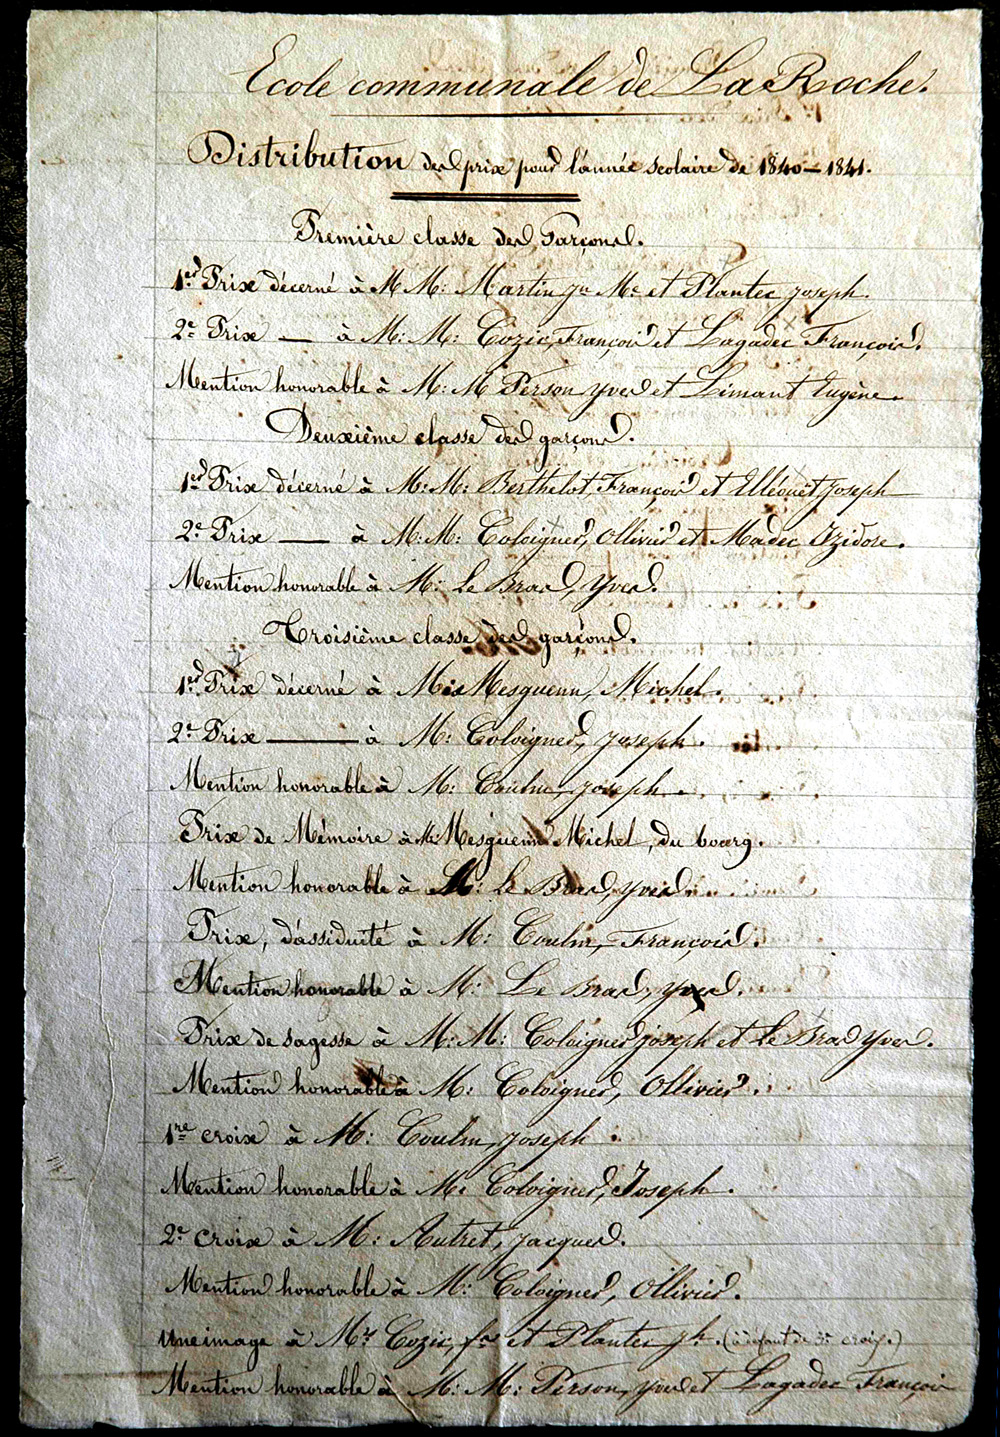 Ecole communale de La Roche.
Distribution des prix pour l'année scolaire de 1840 — 1841.
Première classe des Garçons.
1er Prix décerné à M M: Martin Jn Me et Plantec Joseph.
2e Prix — à M: M: Cozic, François et Lagadec François.
Mention honorable à M: M Person Yves et Limant Eugène.
Deuxième classe des garçons.
1er Prix décerné à M: M: Berthelot, François et Elléouët Joseph
2e Prix — à M: M: Coloigner, Ollivier et Madec Izidore.
Mention honorable à M: Le Bras, Yves.
Troisième classe des garçons.
1er Prix décerné à Mesguenn, Michel.
2e Prix — à M: Coloigner, Joseph.
Mention honorable à M: Coulm, Joseph.
Prix de Mémoire à M: Mesguenn Michel, du bourg.
Mention honorable à M: Le Bras, Yves.
Prix, d'assiduité à M: Coulm, François.
Mention honorable à M: Le Bras, Yves.
Prix de sagesse à M: M: Coloigner Joseph et Le Bras Yves.
Mention honorable à M: Coloigner, Ollivier.
1re croix à M: Coulm, Joseph.
Mention honorable à M: Coloigner, Joseph.
2e croix à M: Autret, Jacques.
Mention honorable à M: Coloigner, Ollivier.
Une image à Mrs Cozic, fs et Plantec Jh. (à défaut de 3e croix.)
Mention honorable à M: M: Person, Yves et Lagadec François